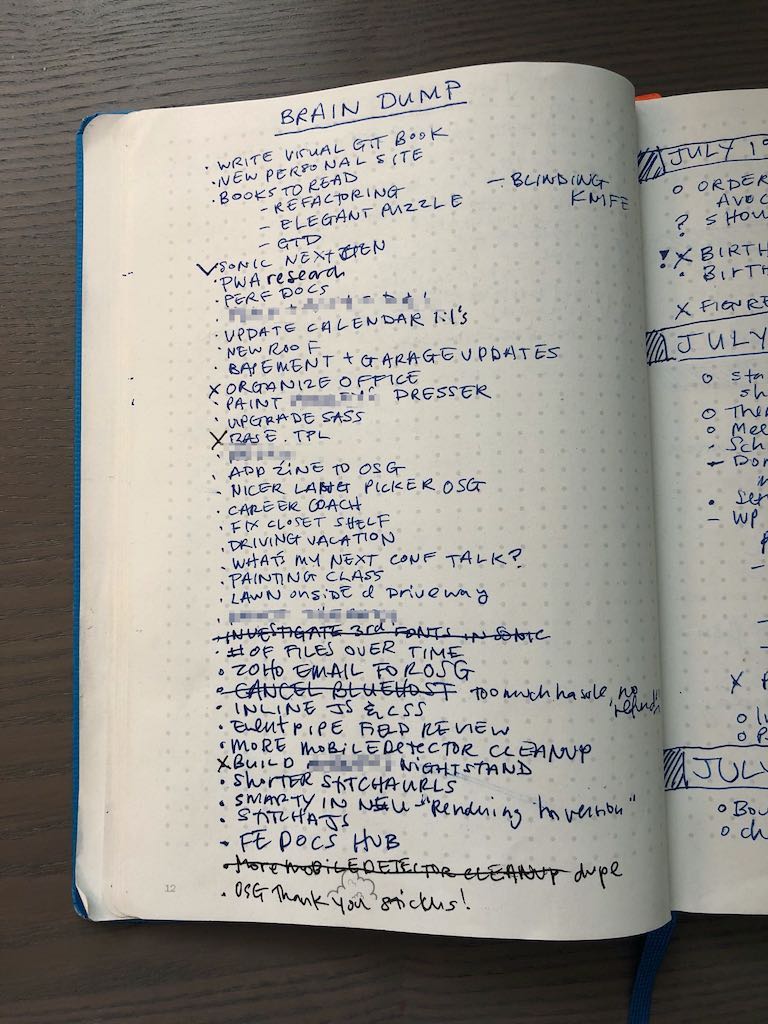 BRAIN DUMP
· WRITE VISUAL GIT BOOK
· NEW PERSONAL SITE
· BOOKS TO READ
- REFACTORING
- BLINDING KNIFE
- ELEGANT PUZZLE
- GTD
✓ SONIC NEXT GEN
· PWA research
· PERF DOCS
· UPDATE CALENDAR 1:1's
· NEW ROOF
· BASEMENT + GARAGE UPDATES
X ORGANIZE OFFICE
· PAINT DRESSER
· UPGRADE SASS
X BASE.TPL
· ADD ZINE TO OSG
· NICER LANG PICKER OSG
· CAREER COACH
· FIX CLOSET SHELF
· DRIVING VACATION
· WHATS MY NEXT CONF TALK?
· PAINTING CLASS
· LAWN onside d Driveway
· INVESTIGATE 3rd FONTS IN SONIC
· # OF FILES OVER TIME
· ZOHO EMAIL FOR OSG
· CANCEL BLUEHOST too much hassle, no refunds
· INLINE JS & CSS
· Event PIPE FIELD REVIEW
· MORE mobileDetector CLEANUP
X BUILD NIGHTSTAND
· Shorter STITCHA URLS
· SMARTY IN NEW "Rendering Inversion"
· STITCHA JS
- FE DOCS HUB
· More MOBILE DETECTOR CLEANUP dupe
· OSG Thank you stickers!
12
JULY 19
o ORDER
AVOC
? SHOU
! X BIRTH
· BIRTH
X FIGURE
JULY
o Sta
sh
o The
o Mee
- Sch
- Don
· Set
- WP
JULY
o Bou
o Ch